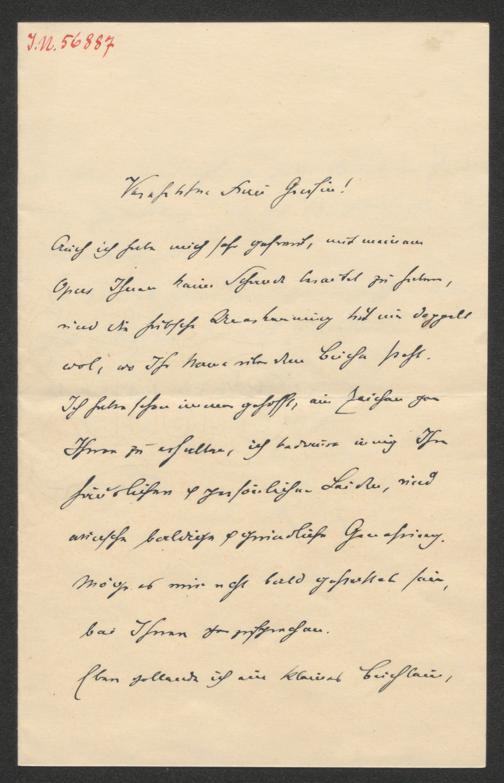 J.N. 56887
Verehrteste Frau Gräfin!
Auch ich habe mich sehr gefreut, mit meinem
Opus Ihnen keine Schande bereitet zu haben,
und die hübsche Anerkennung tut mir doppelt
wol, wo Ihr Name über dem Buche steht.
Ich habe schon immer gehofft, ein Zeichen von
Ihnen zu erhalten, ich bedaure innig Ihre
häuslichen & persönlichen Leiden, und
wünsche baldige & gründliche Genesung.
Möge es mir recht bald gestattet sein,
bei Ihnen vorzusprechen.
Eben vollende ich ein kleines Büchlein,